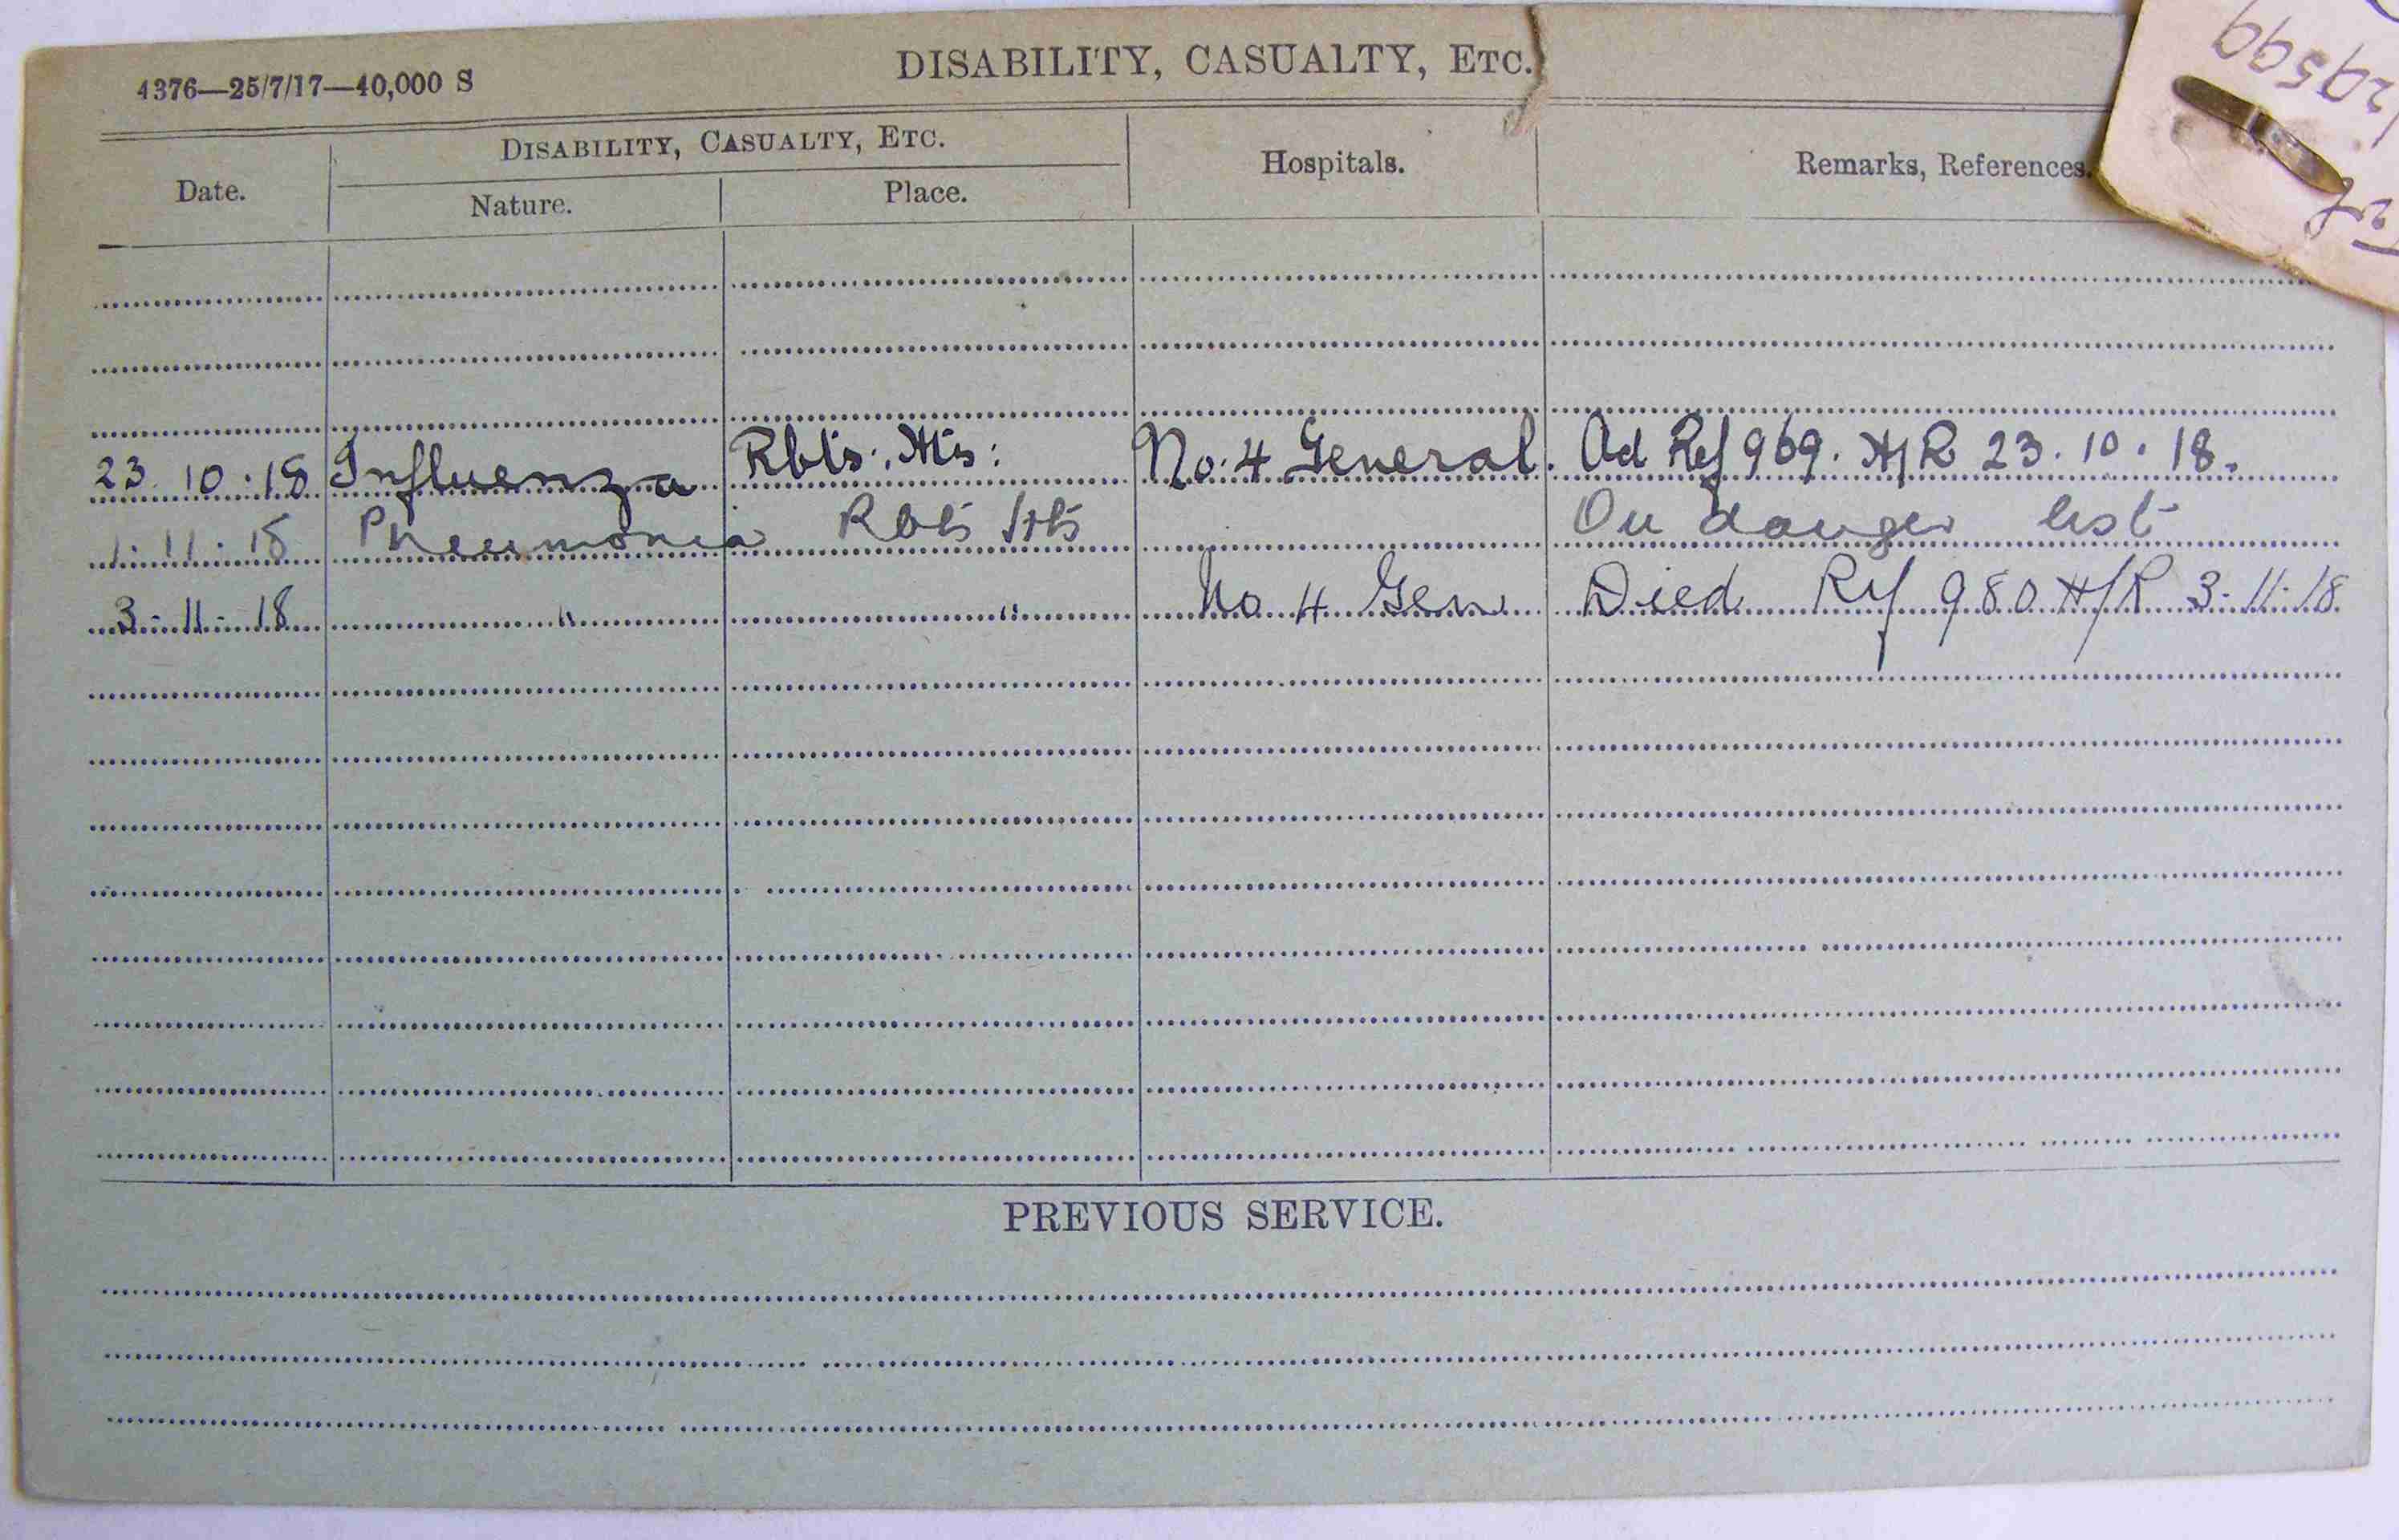 4376—25/7/17—40,000 S
DISABILITY, CASUALTY, ETC.
Date.
DISABILITY, CASUALTY, ETC.
Nature.
Place.
Hospitals.
Remarks, References.
23.10.18 Influenza Rbts. Hts: No. 4 General. Ad Ref 969. H/R 23.10.18.
1.11.18 Pneumonia Rbts Hts On danger list
3.11.18 " " No 4 Gen Died Ref 980 H/R 3.11.18
PREVIOUS SERVICE.